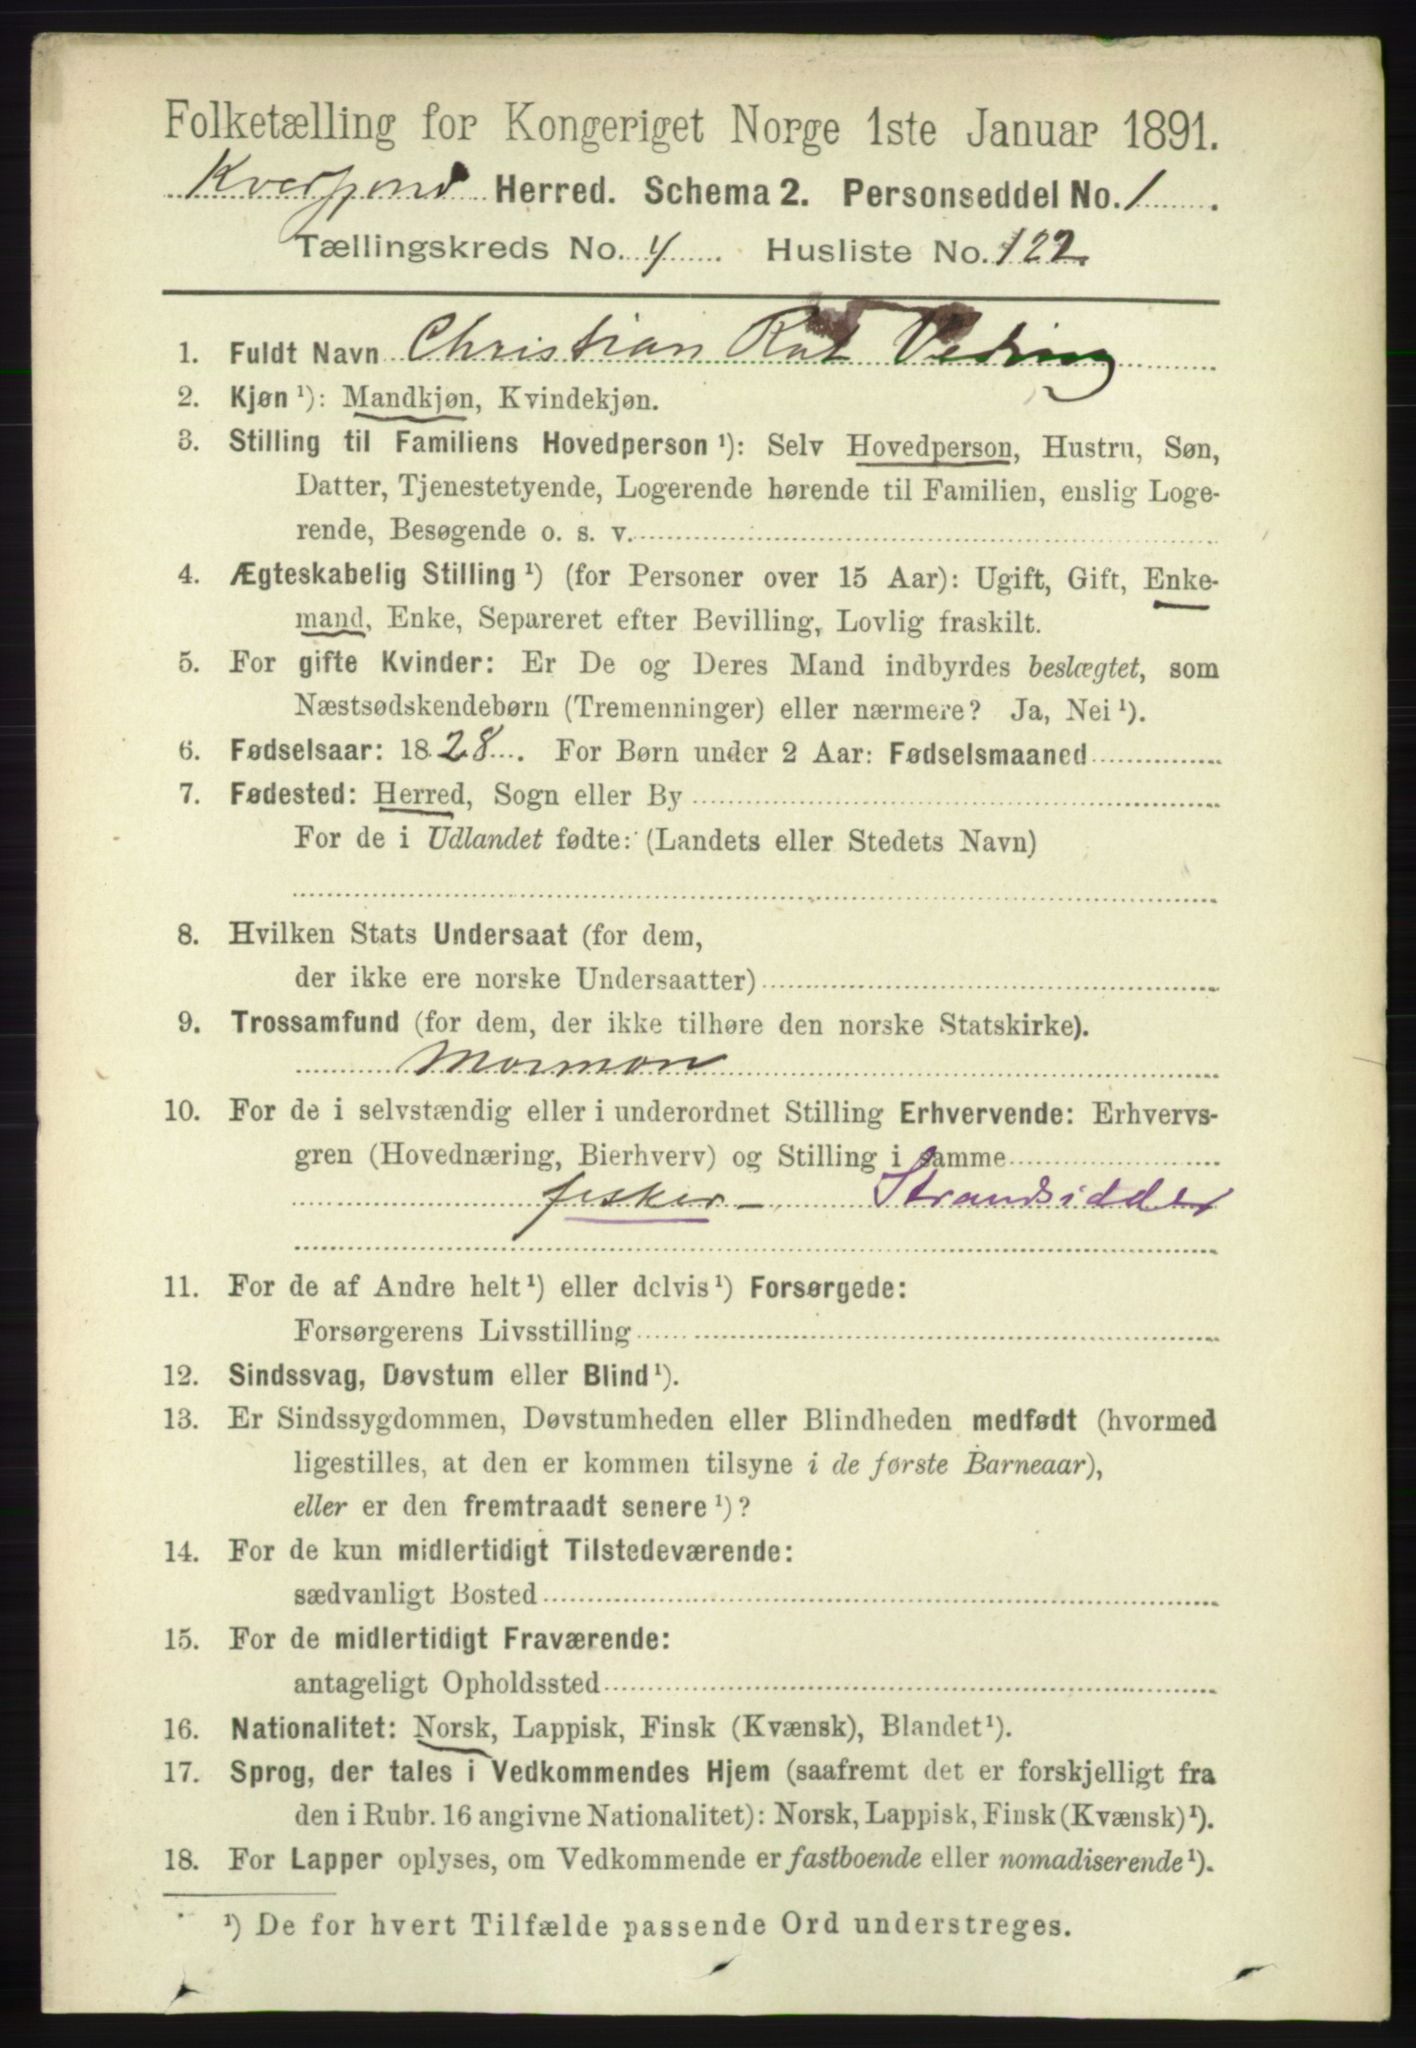 Folketælling for Kongeriget Norge 1ste Januar 1891.
Kverfjord Herred. Schema 2. Personseddel No. 1.
Tællingskreds No. 4. Husliste No. 122.
1. Fuldt Navn Christian
2. Kjøn ¹): Mandkjøn, Kvindekjøn.
3. Stilling til Familiens Hovedperson ¹): Selv Hovedperson, Hustru, Søn,
Datter, Tjenestetyende, Logerende hørende til Familien, enslig Loge-
rende, Besøgende o. s. v.
4. Ægteskabelig Stilling ¹) (for Personer over 15 Aar): Ugift, Gift, Enke-
mand, Enke, Separeret efter Bevilling, Lovlig fraskilt.
5. For gifte Kvinder: Er De og Deres Mand indbyrdes beslægtet, som
Næstsødskendebørn (Tremenninger) eller nærmere? Ja, Nei ¹).
6. Fødselsaar: 1828. For Børn under 2 Aar: Fødselsmaaned
7. Fødested: Herred, Sogn eller By
For de i Udlandet fødte: (Landets eller Stedets Navn)
8. Hvilken Stats Undersaat (for dem,
der ikke ere norske Undersaatter)
9. Trossamfund (for dem, der ikke tilhøre den norske Statskirke).
Mormon
10. For de i selvstændig eller i underordnet Stilling Erhvervende: Erhvervs-
gren (Hovednæring, Bierhverv) og Stilling i samme
fisker - Strandsidder
11. For de af Andre helt ¹) eller delvis ¹) Forsørgede:
Forsørgerens Livsstilling
12. Sindssvag, Døvstum eller Blind ¹).
13. Er Sindssygdommen, Døvstumheden eller Blindheden medfødt (hvormed
ligestilles, at den er kommen tilsyne i de første Barneaar),
eller er den fremtraadt senere ¹)?
14. For de kun midlertidigt Tilstedeværende:
sædvanligt Bosted
15. For de midlertidigt Fraværende:
antageligt Opholdssted
16. Nationalitet: Norsk, Lappisk, Finsk (Kvænsk), Blandet ¹).
17. Sprog, der tales i Vedkommendes Hjem (saafremt det er forskjelligt fra
den i Rubr. 16 angivne Nationalitet): Norsk, Lappisk, Finsk (Kvænsk) ¹).
18. For Lapper oplyses, om Vedkommende er fastboende eller nomadiserende ¹).
¹) De for hvert Tilfælde passende Ord understreges.